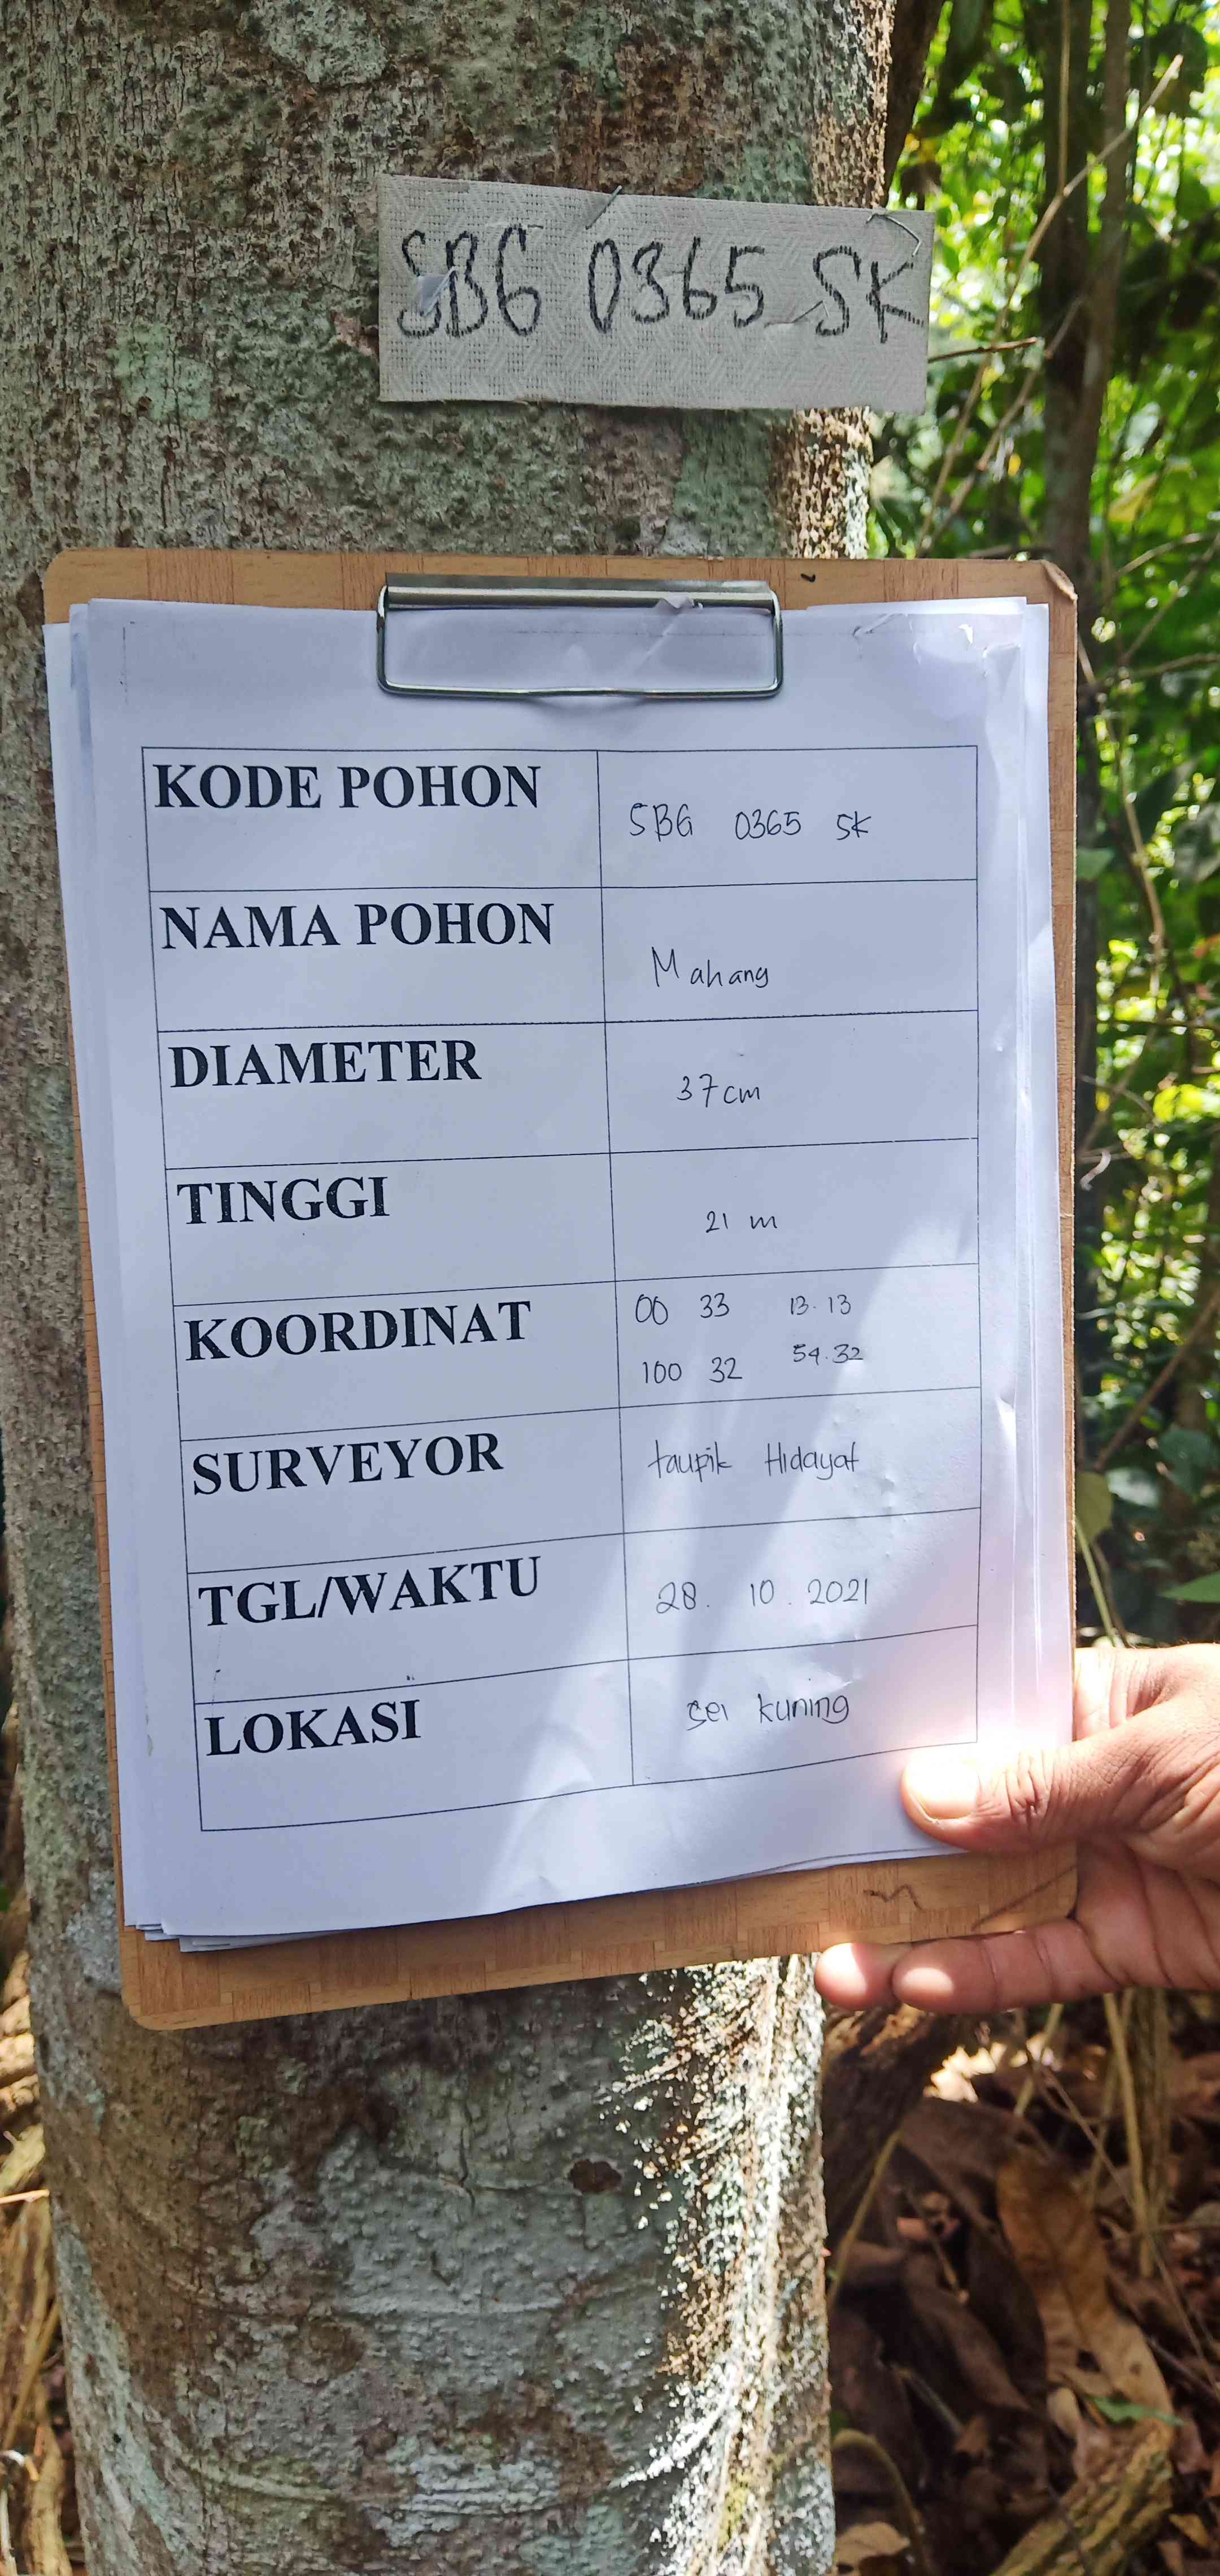 SBG 0365 SK
KODE POHON SBG 0365 SK
NAMA POHON Mahang
DIAMETER 37cm
TINGGI 21 m
KOORDINAT 00 33 13.13
100 32 54.32
SURVEYOR taupik Hidayat
TGL/WAKTU 28. 10. 2021
LOKASI sei kuning